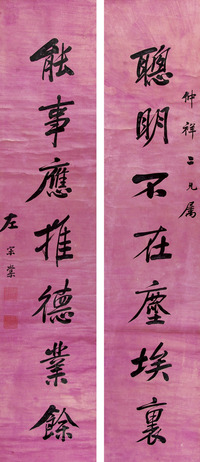 仲祥二兄属
聪明不在尘埃裏
能事應推德業餘
左宗棠